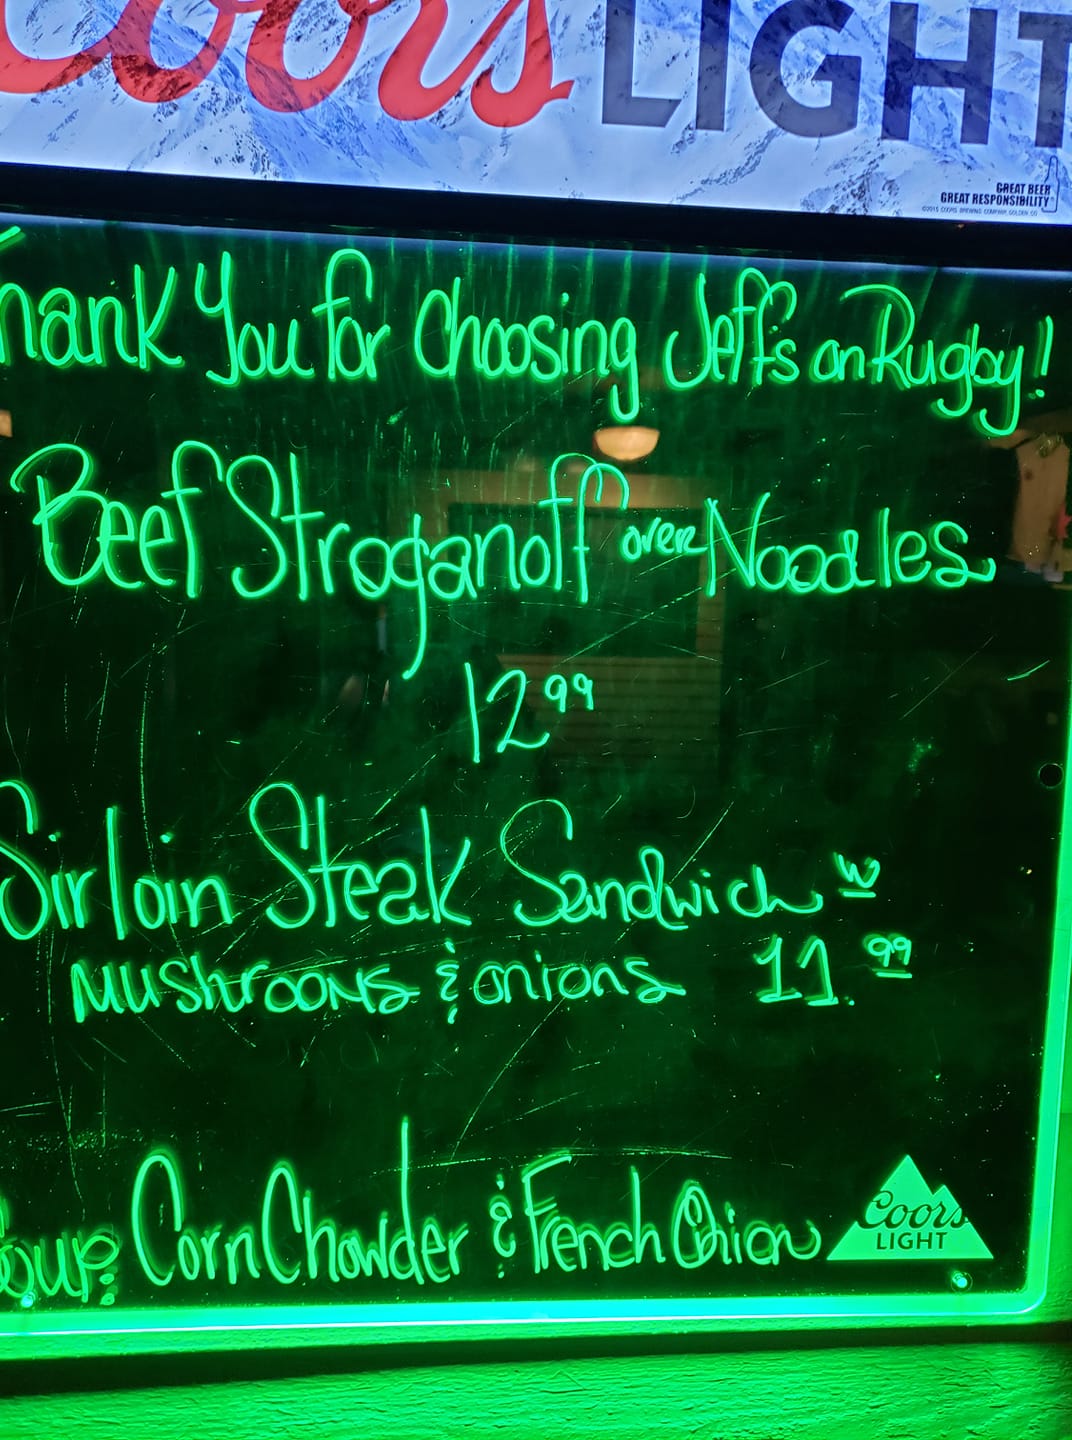 Coors LIGHT
GREAT BEER
GREAT RESPONSIBILITY
©2015 COORS BREWING COMPANY, GOLDEN, CO
Thank You for Choosing Jeffs on Rugby!
Beef Stroganoff over Noodles
12 99
Sirloin Steak Sandwich w
mushrooms & onions 11. 99
Soup: Corn Chowder & French Onion
Coors
LIGHT